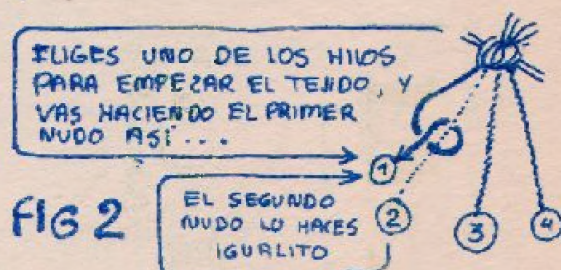 ELIGES UNO DE LOS HILOS
PARA EMPEZAR EL TEJIDO, Y
VAS HACIENDO EL PRIMER
NUDO ASÍ...
1
FIG 2
EL SEGUNDO
NUDO LO HACES
IGUALITO
2
3
4